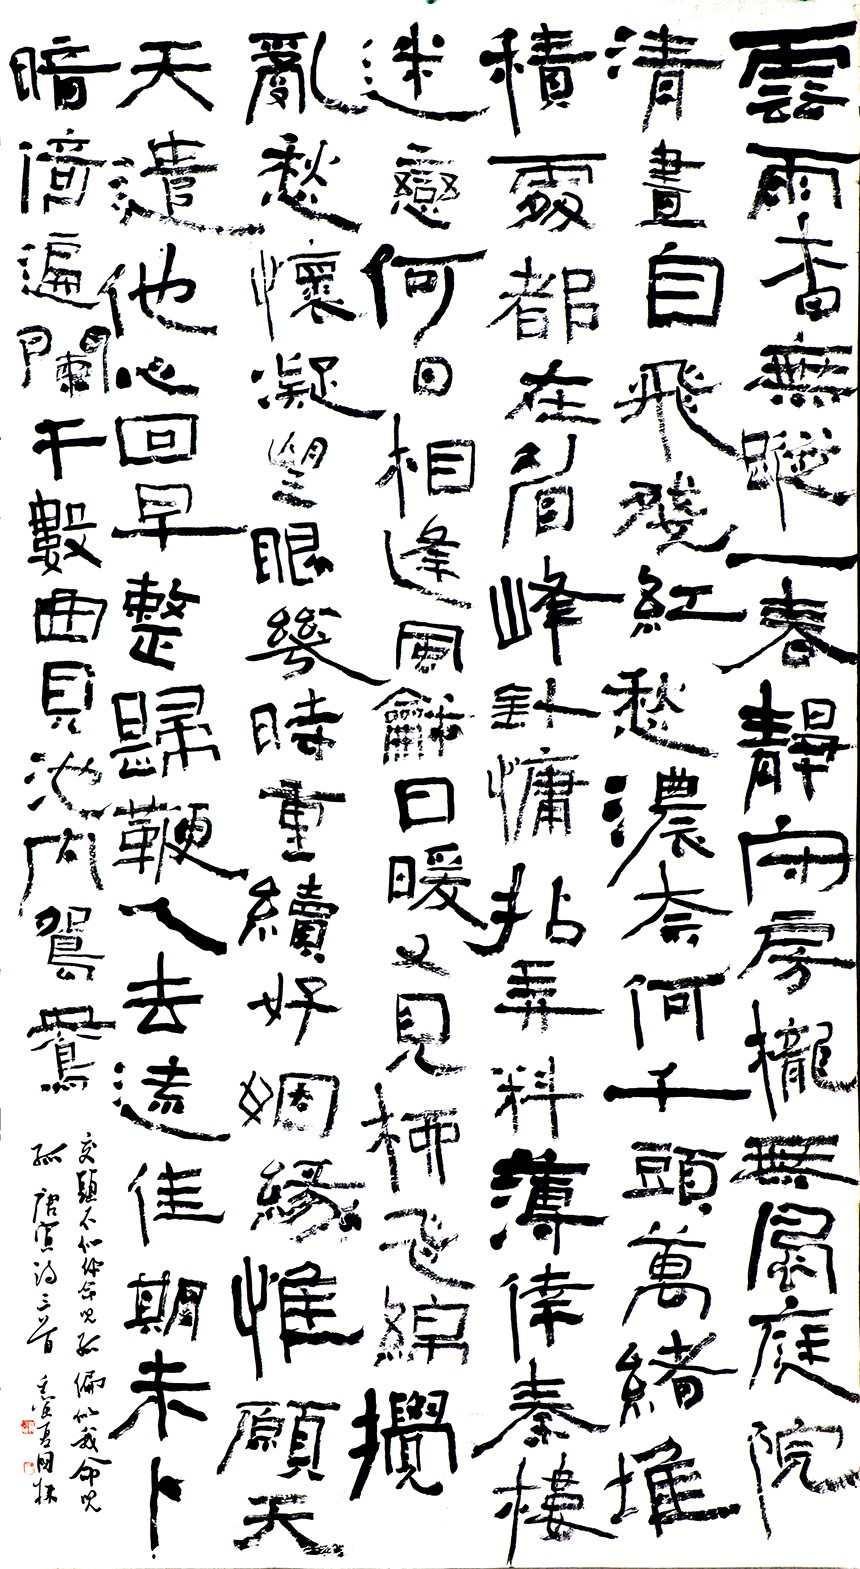 雲雨杳無蹤一春靜雨房櫳無風庭院
清晝自飛殘紅愁濃奈何千頭萬緒堆
積處都在眉峰針慵拈弄料薄倖秦樓
迷戀何日相逢風龢日暖又見柳飛綿攪
亂愁懷凝望眼幾時重續好姻緣惟願天
天遣他心回早整歸鞭人去遠佳期未卜
暗倚遍闌干數曲見池内鴛鴦
交頸不似你命兒孤偏似我命兒
孤 唐寅詩三首 壬寅夏国林